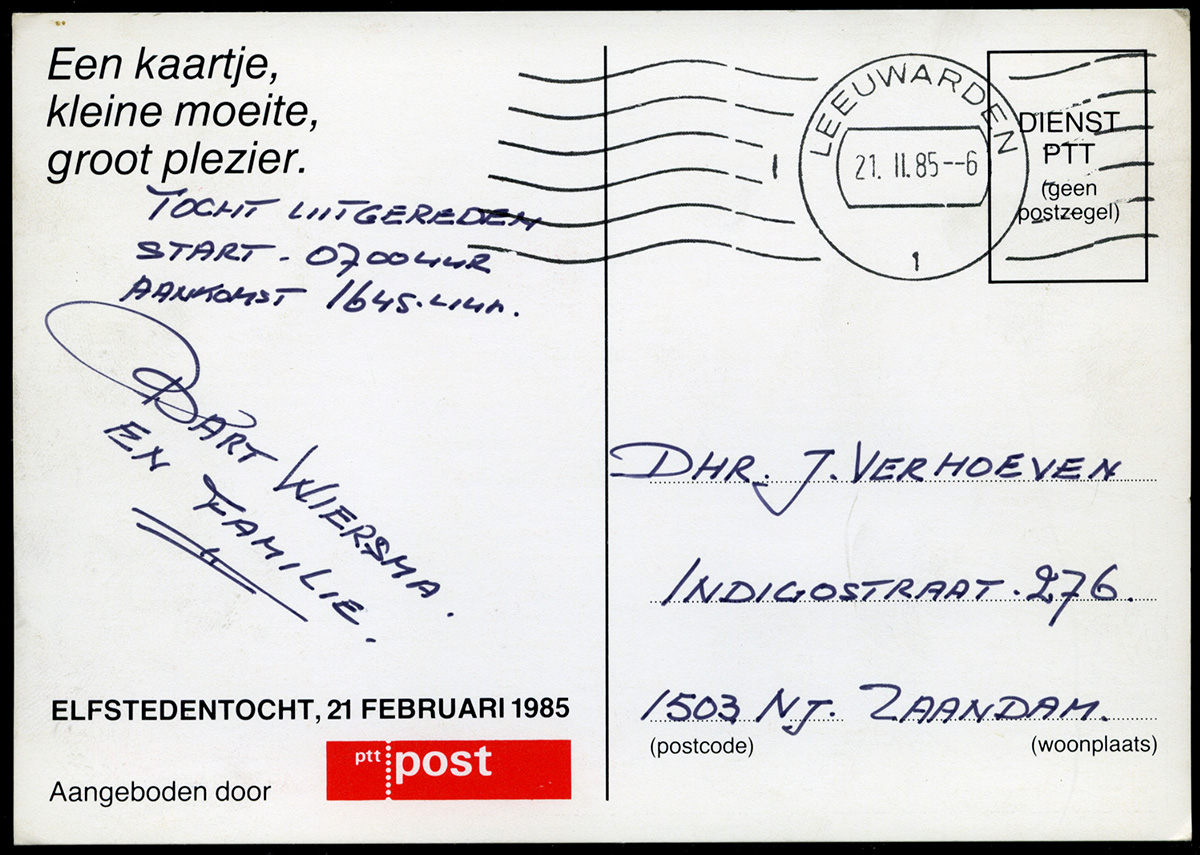 Een kaartje,
kleine moeite,
groot plezier.
TOCHT UITGEREDEN
START - 0700 UUR
AANKOMST 1645.UUR.
BART WIERSMA.
EN FAMILIE.
ELFSTEDENTOCHT, 21 FEBRUARI 1985
Aangeboden door
ptt post
LEEUWARDEN
21. II.85--6
1
DIENST
PTT
(geen
postzegel)
DHR. J. VERHOEVEN
INDIGOSTRAAT. 276.
1503 NJ. ZAANDAM.
(postcode) (woonplaats)